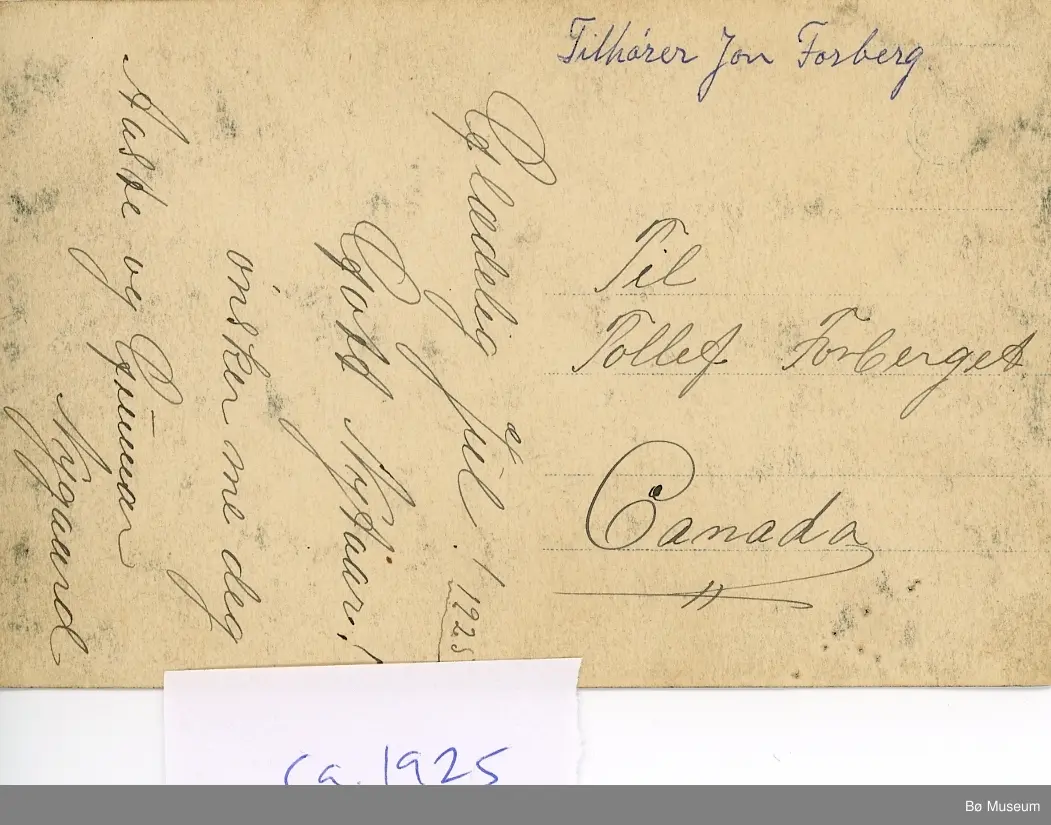 Tilhører Jon Forberg
Gladelig jul!
et
Godt Nytaar! 1925
önsker me deg
Aaste og Gunnar
Nygaard
Til
Tollef Forberget
Canada
ca. 1925
Bø Museum